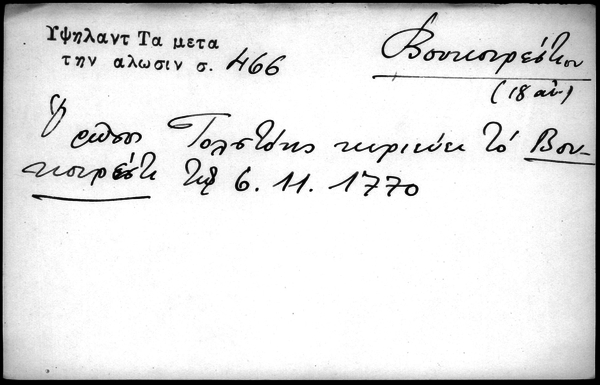 Υψηλαντ Τα μετα
την αλωσιν σ. 466
Βουκουρέστιον
(18 αι)
Ὁ ρῶσος Τολστόης κυριεύει τὸ Βου-
κουρέστι τῇ 6. 11. 1770